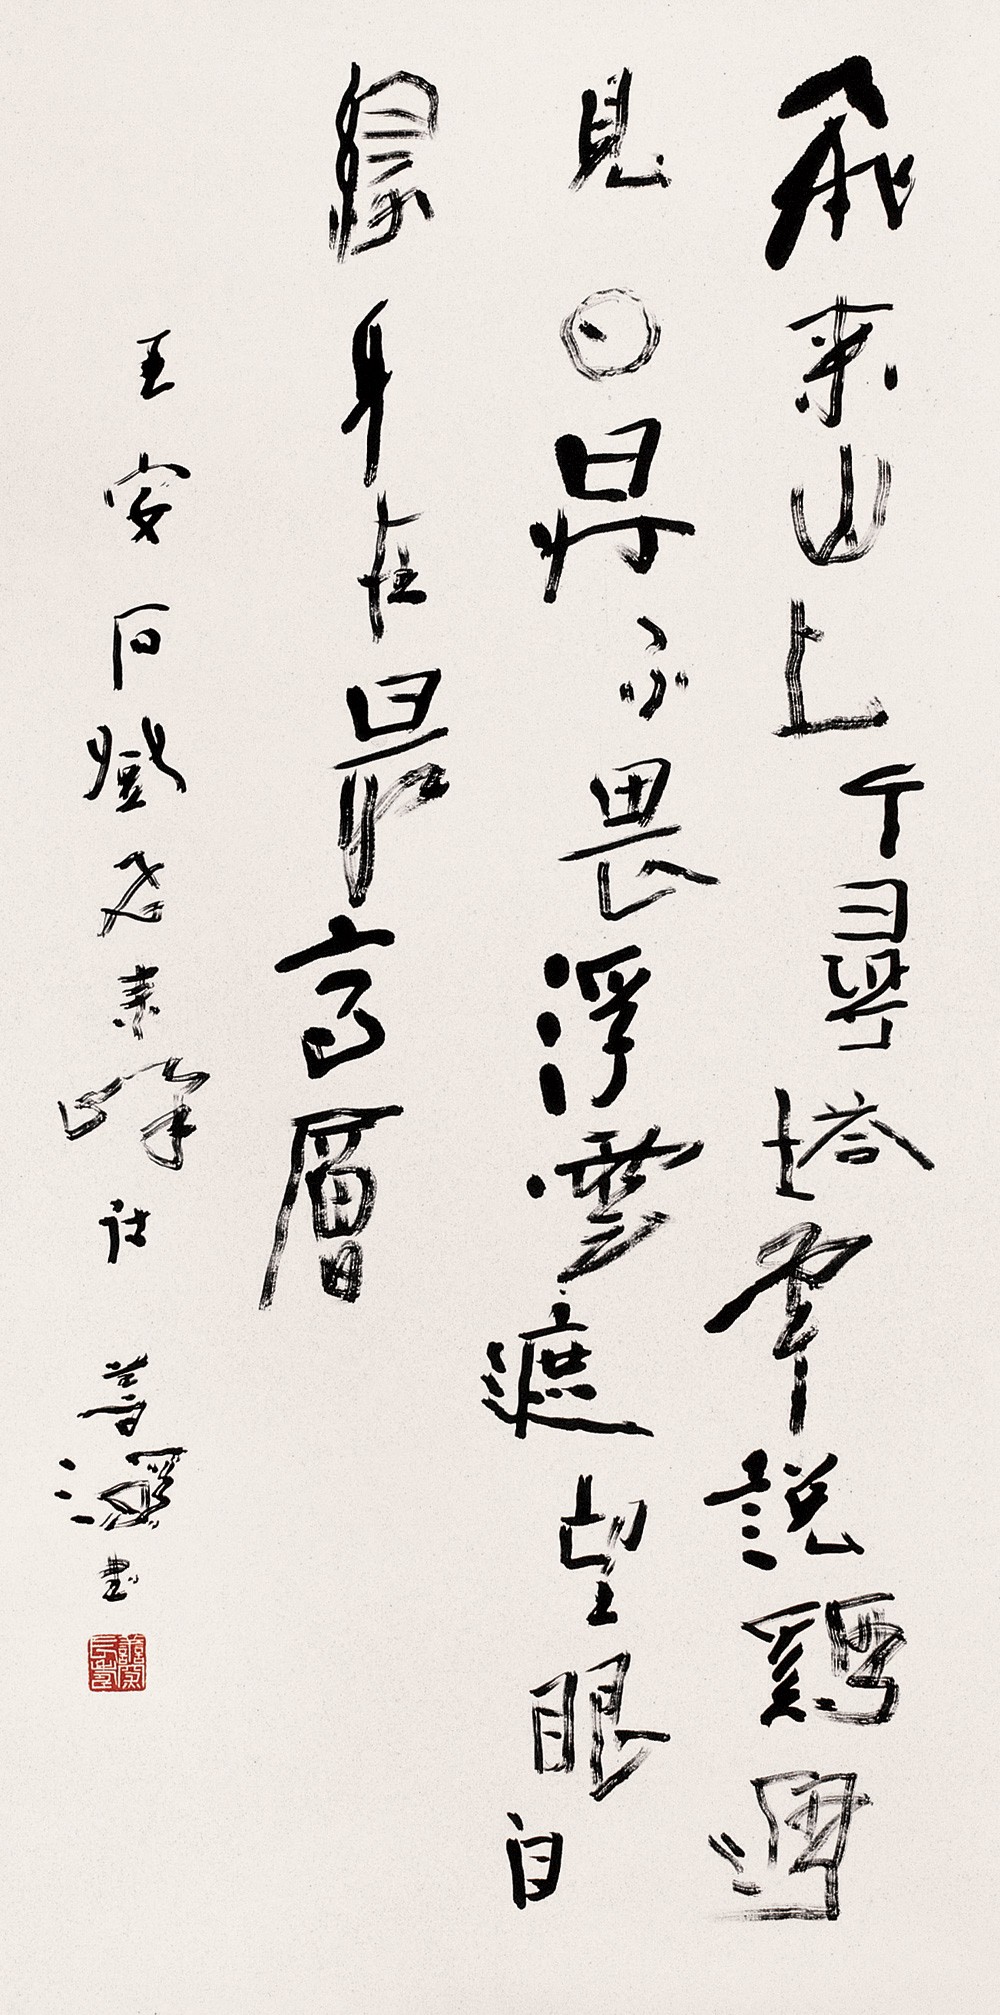 飛来山上千尋塔聞說鷄鳴
見日昇不畏浮雲遮望眼自
緣身在最高層
王安石登飛来峰詩 書